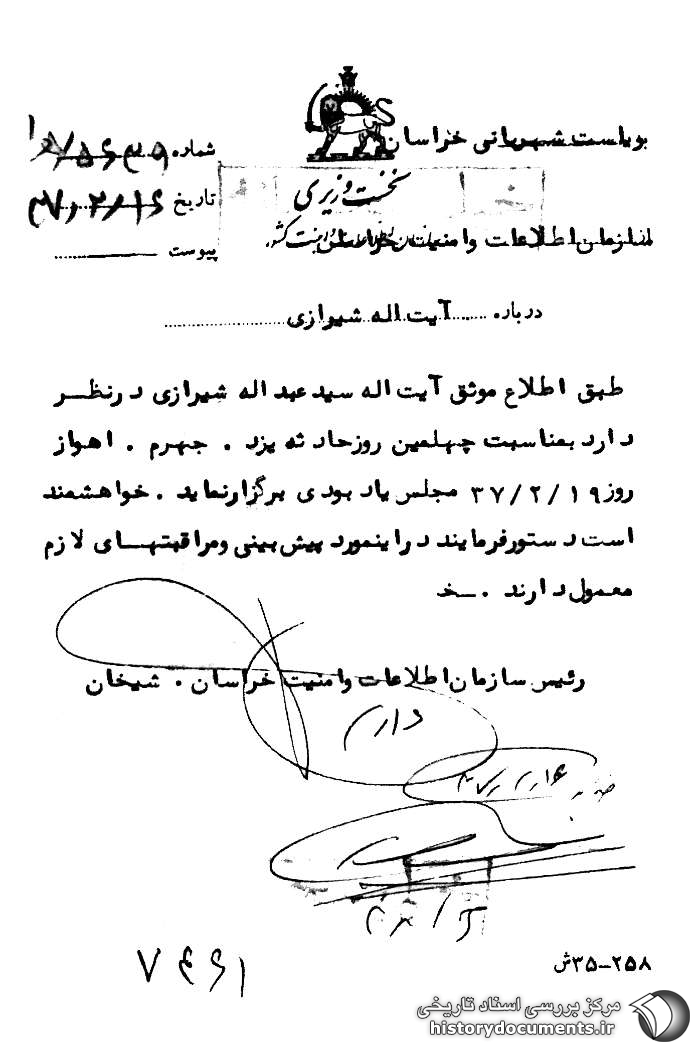 بریاست شهربانی خراسان
شماره
تاریخ ۳۷/۲/۱۶
پیوست
نخست وزیری
از سازمان اطلاعات و امنیت خراسان
درباره آیت اله شیرازی
طبق اطلاع موثق آیت اله سید عبد اله شیرازی درنظر
دارد بمناسبت چهلمین روز حادثه یزد . جهرم . اهواز
روز ۳۷/۲/۱۹ مجلس یاد بودی برگزار نماید . خواهشمند
است دستور فرمایند دراینمورد پیش بینی ومراقبتهای لازم
معمول دارند .
رئیس سازمان اطلاعات وامنیت خراسان . شیخان
۳۵-۲۵۸ش
مرکز بررسی اسناد تاریخی
historydocuments.ir